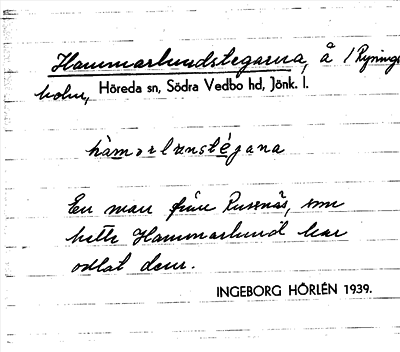 Hammarlundstegarna, å 1 Rynings-
holm, Höreda sn, Södra Vedbo hd, Jönk. l.
hàmarlunstégana
En man från Rusnäs, som
hette Hammarlund har
odlat dem.
INGEBORG HÖRLÉN 1939.